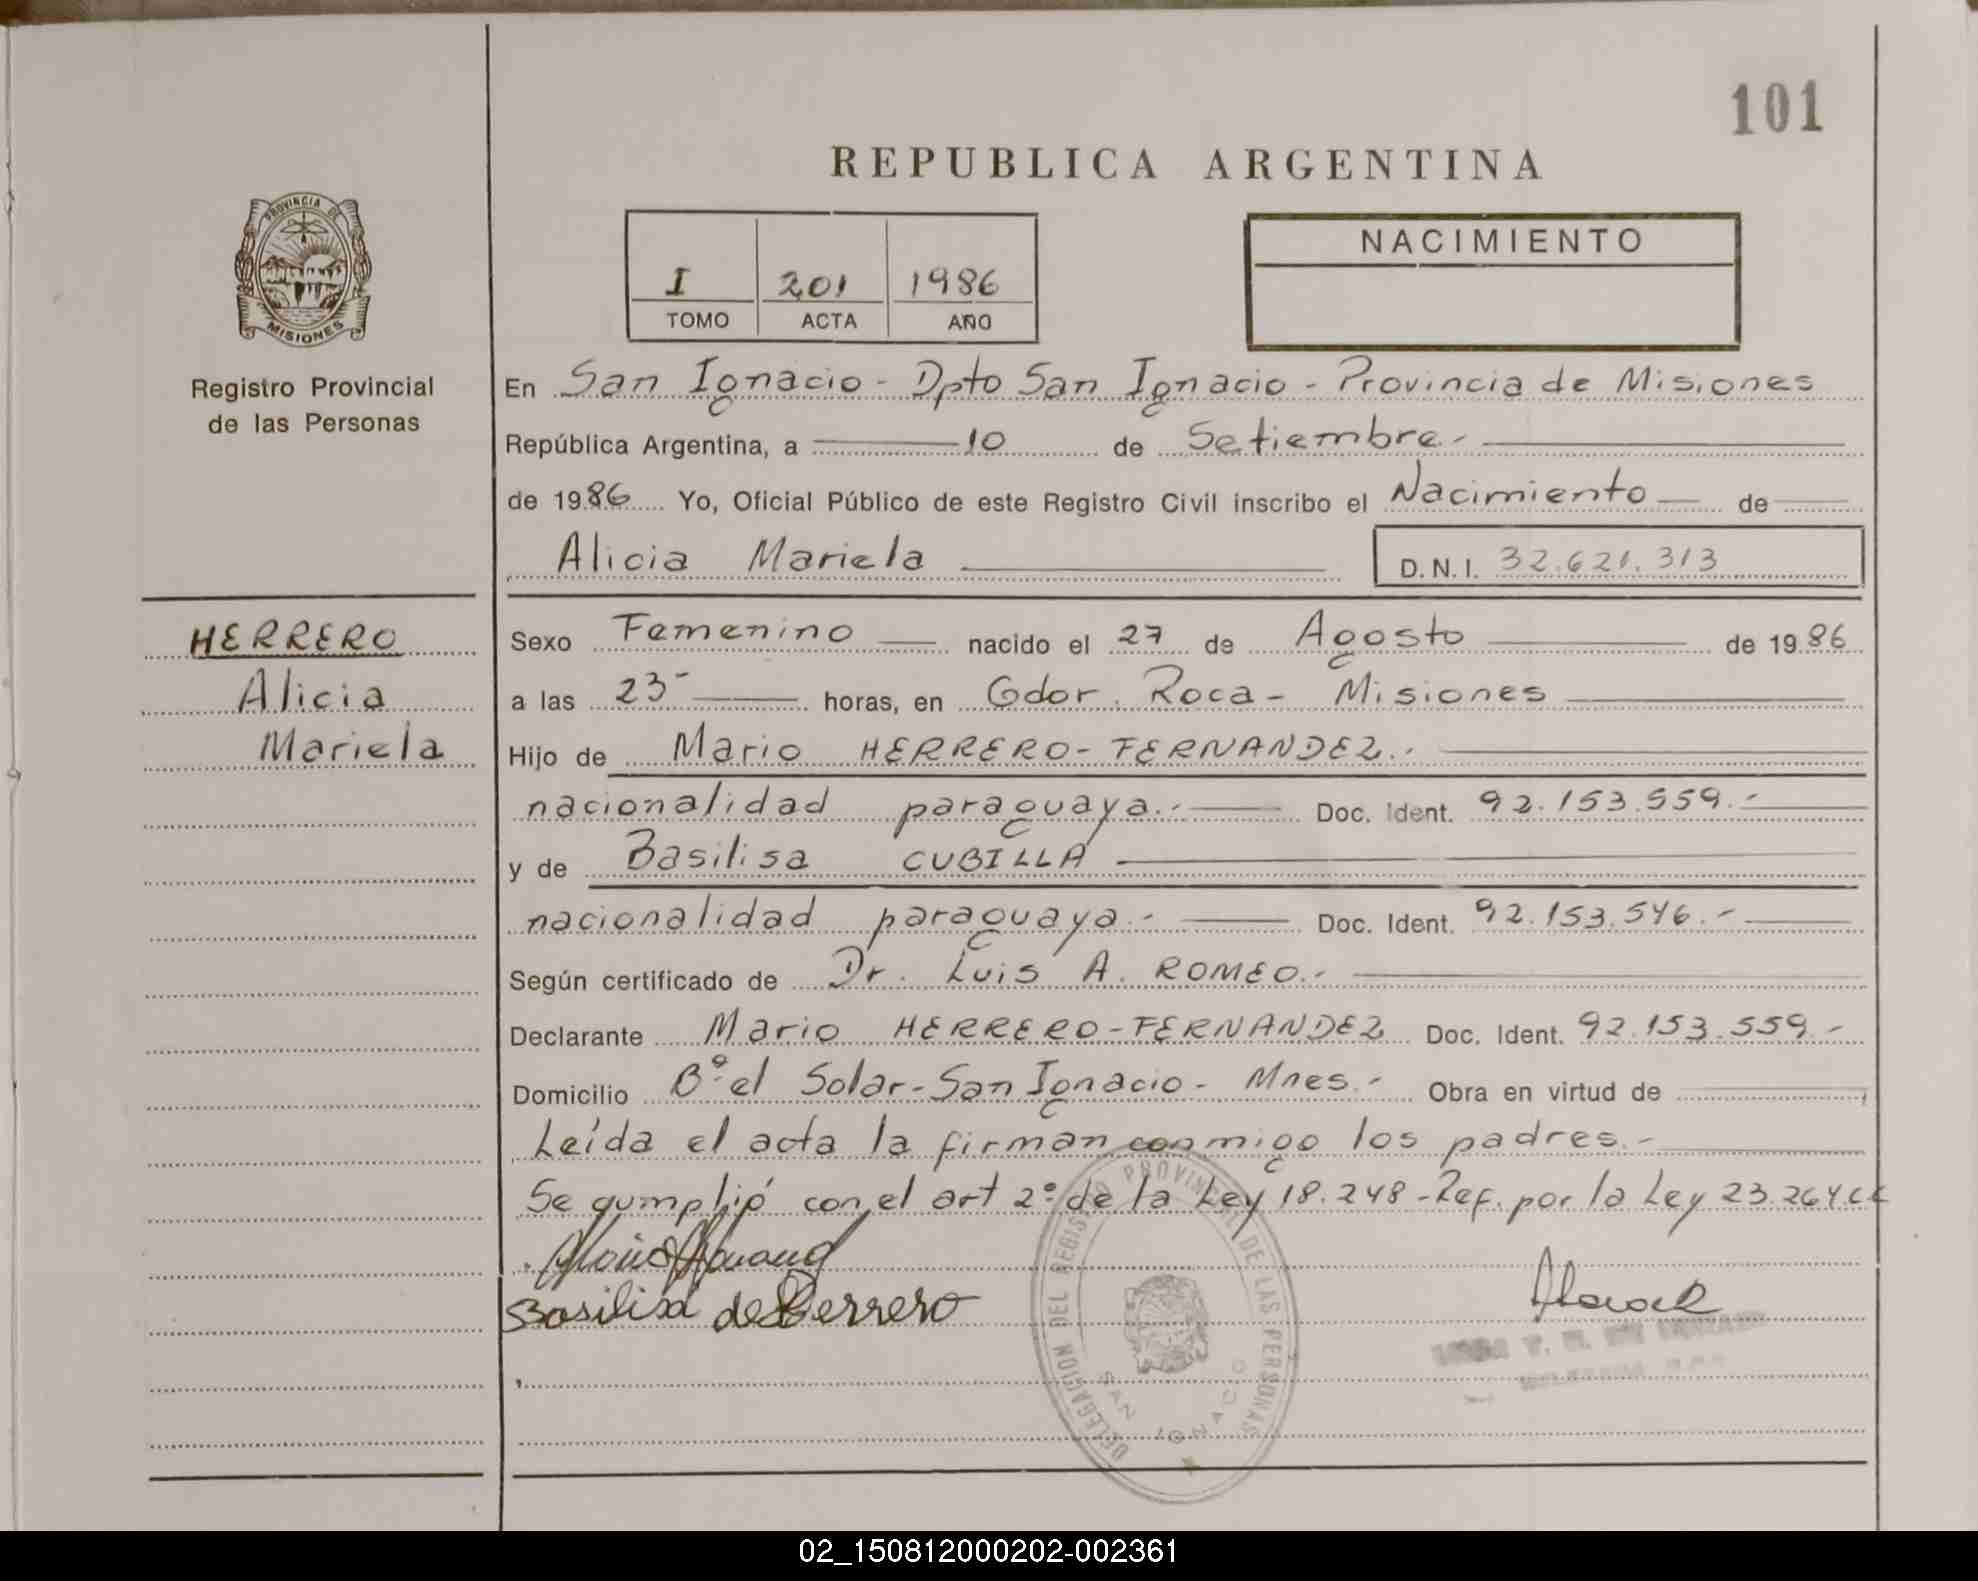 101
REPUBLICA ARGENTINA
PROVINCIA DE
MISIONES
Registro Provincial
de las Personas
I 201 1986
TOMO ACTA AÑO
NACIMIENTO
En San Ignacio - Dpto San Ignacio - Provincia de Misiones
República Argentina, a 10 de Setiembre.-
de 1986 Yo, Oficial Público de este Registro Civil inscribo el Nacimiento de
Alicia Mariela D.N.I. 32.621.313
HERRERO
Alicia
Mariela
Sexo Femenino nacido el 27 de Agosto de 1986
a las 23- horas, en Gdor. Roca - Misiones
Hijo de Mario HERRERO-FERNANDEZ.-
nacionalidad paraguaya.- Doc. Ident. 92.153.559.-
y de Basilisa CUBILLA
nacionalidad paraguaya.- Doc. Ident. 92.153.546.-
Según certificado de Dr. Luis A. ROMEO.-
Declarante Mario HERRERO-FERNANDEZ Doc. Ident. 92.153.559.-
Domicilio Bº el Solar-San Ignacio - Mnes.- Obra en virtud de
Leída el acta la firman conmigo los padres.-
Se cumplió con el art 2º de la Ley 18.248-Ref. por la Ley 23.264 CC
Basilisa de Herrero
DELEGACION DEL REGISTRO PROVINCIAL DE LAS PERSONAS
SAN IGNACIO
02_150812000202-002361